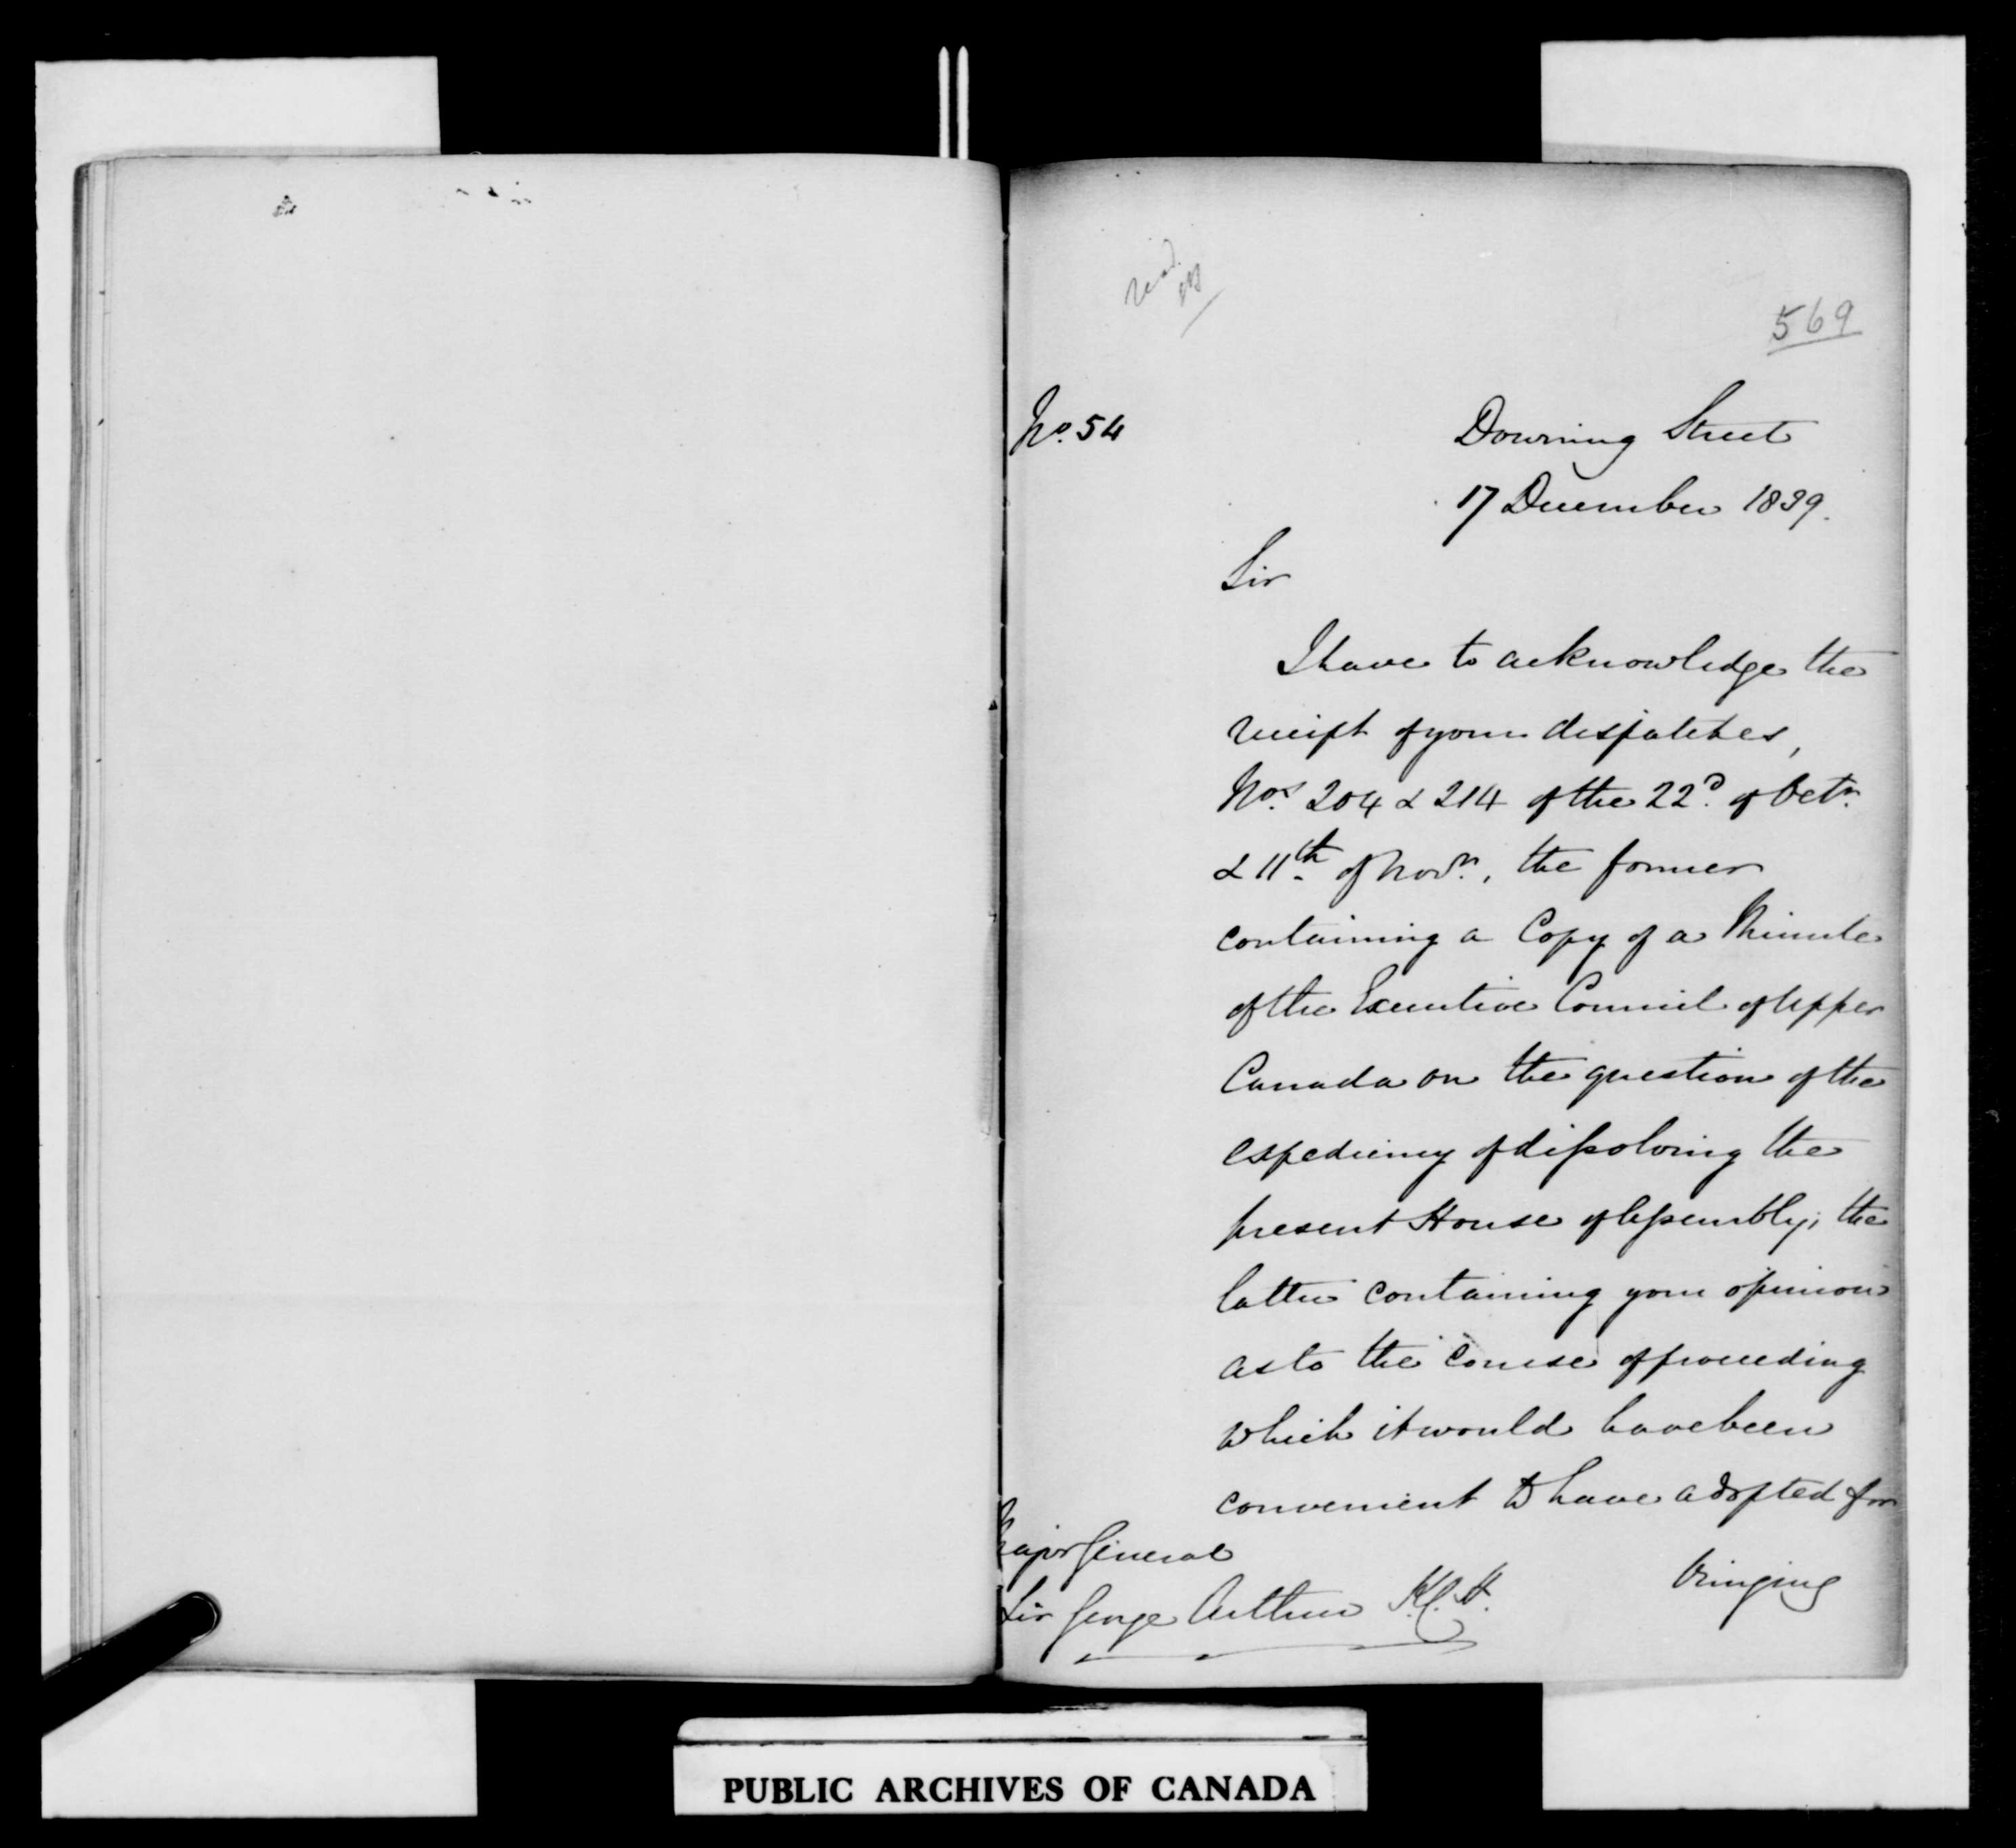 569
No. 54
Downing Street
17 December 1839.
Sir
I have to acknowledge the
receipt of your despatches,
Nos. 204 & 214 of the 22d. of Octr.
& 11th. of Novr., the former
containing a Copy of a Minute
of the Executive Council of Upper
Canada on the question of the
expediency of dissolving the
present House of Assembly; the
latter containing your opinion
as to the course of proceeding
which it would have been
convenient to have adopted for
bringing
Major General
Sir George Arthur K.C.H.
PUBLIC ARCHIVES OF CANADA